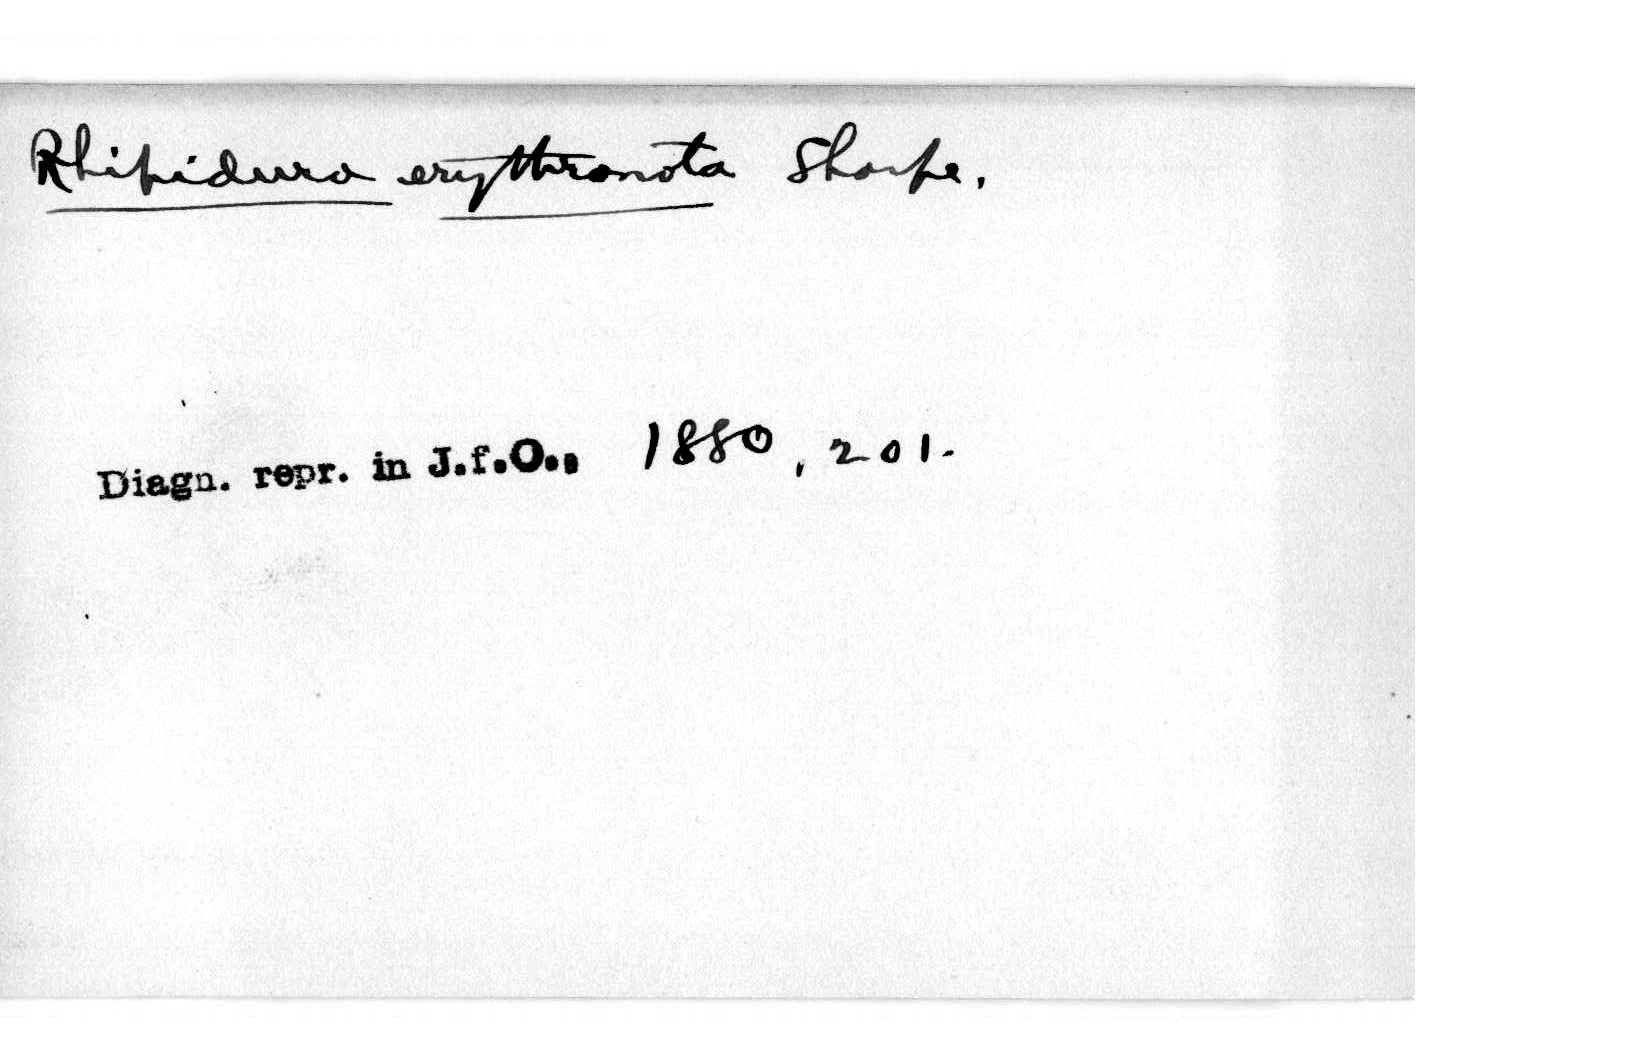 Rhipidura erythronota Sharpe.
Diagn. repr. in J.f.O., 1880, 201.